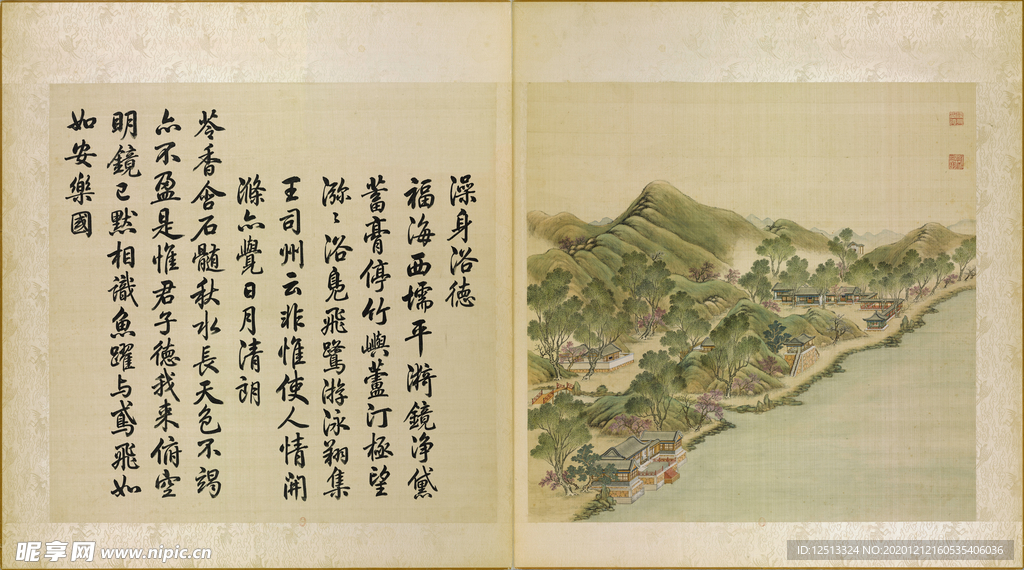 澡身浴德
福海西壖平漪鏡浄黛
蓄膏停竹嶼蘆汀極望
瀰〻浴鳧飛鷺游泳翔集
王司州云非惟使人情開
滌亦覺日月清朗
苓香含石髓秋水長天色不竭
亦不盈是惟君子徳我来俯空
明鏡已默相識魚躍与鳶飛如
如安樂國
昵享网 www.nipic.cn
ID:12513324 NO:20201212160535406036